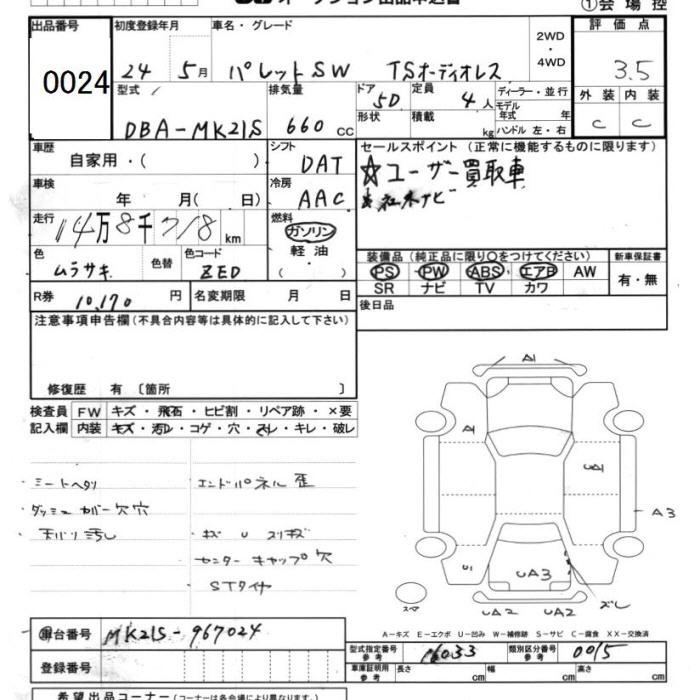 ①会場控
出品番号 0024
初度登録年月 24 5月
車名・グレード パレットSW TSオーディオレス
2WD ・ 4WD
評価点 3.5
型式 DBA-MK21S
排気量 660 cc
ドア 5D 形状
定員 4人 積載 kg
ディーラー・並行
モデル年式 年
ハンドル 左・右
外装 内装
C C
車歴 自家用・( )
シフト DAT
セールスポイント(正常に機能するものに限ります)
☆ユーザー買取車
車検 年 月( 日)
冷房 AAC
走行 14万8千718km
燃料 ガソリン 軽油 ( ・ )
色 ムラサキ 色替 色コード ZED
装備品(純正品に限り○をつけてください)
PS PW ABS エアB AW
SR ナビ TV カワ
新車保証書 有・無
R券 10,170 円 名変期限 月 日
後日品
注意事項申告欄(不具合内容等は具体的に記入して下さい)
修復歴 有 〔箇所 〕
検査員記入欄 FW キズ・飛石・ヒビ割・リペア跡・×要
内装 キズ・汚れ・コゲ・穴・スレ・キレ・破レ
シートヘタリ エンドパネル歪
ダッシュ カバー欠穴
天バリ汚し キズ U スリキズ
センターキャップ欠
STタイヤ
A1
A1
UA1
A3
U1
UA3
UA2 UA2 ズレ
スペア
A-キズ E-エクボ U-凹み W-補修跡 S-サビ C-腐食 XX-交換済
車台番号 MK21S-967024
登録番号
型式指定番号 参考 16033 類別区分番号 参考 0015
車庫証明用 参考 長さ cm 幅 cm 高さ cm
希望出品コーナー(コーナーは各会場により異なります。)